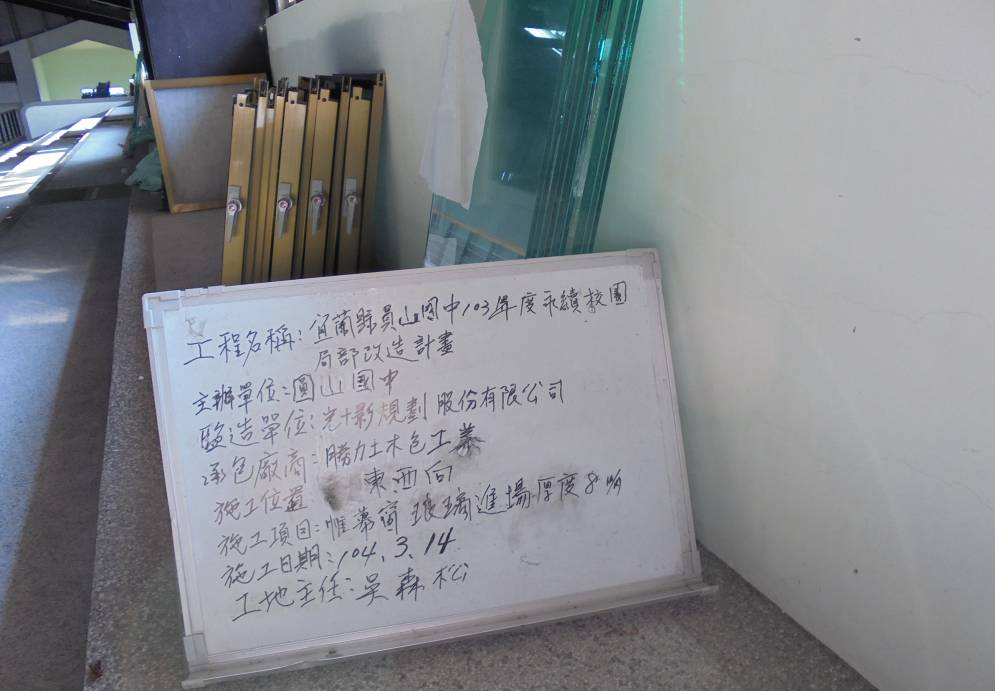 工程名稱：宜蘭縣員山國中103年度永續校園
局部改造計畫
主辦單位：圓山國中
監造單位：光十影規劃股份有限公司
承包廠商：勝力土木包工業
施工位置 東西向
施工項目：帷幕窗 琅璃進場 厚度
施工日期：104.3.14
工地主任：吳森松